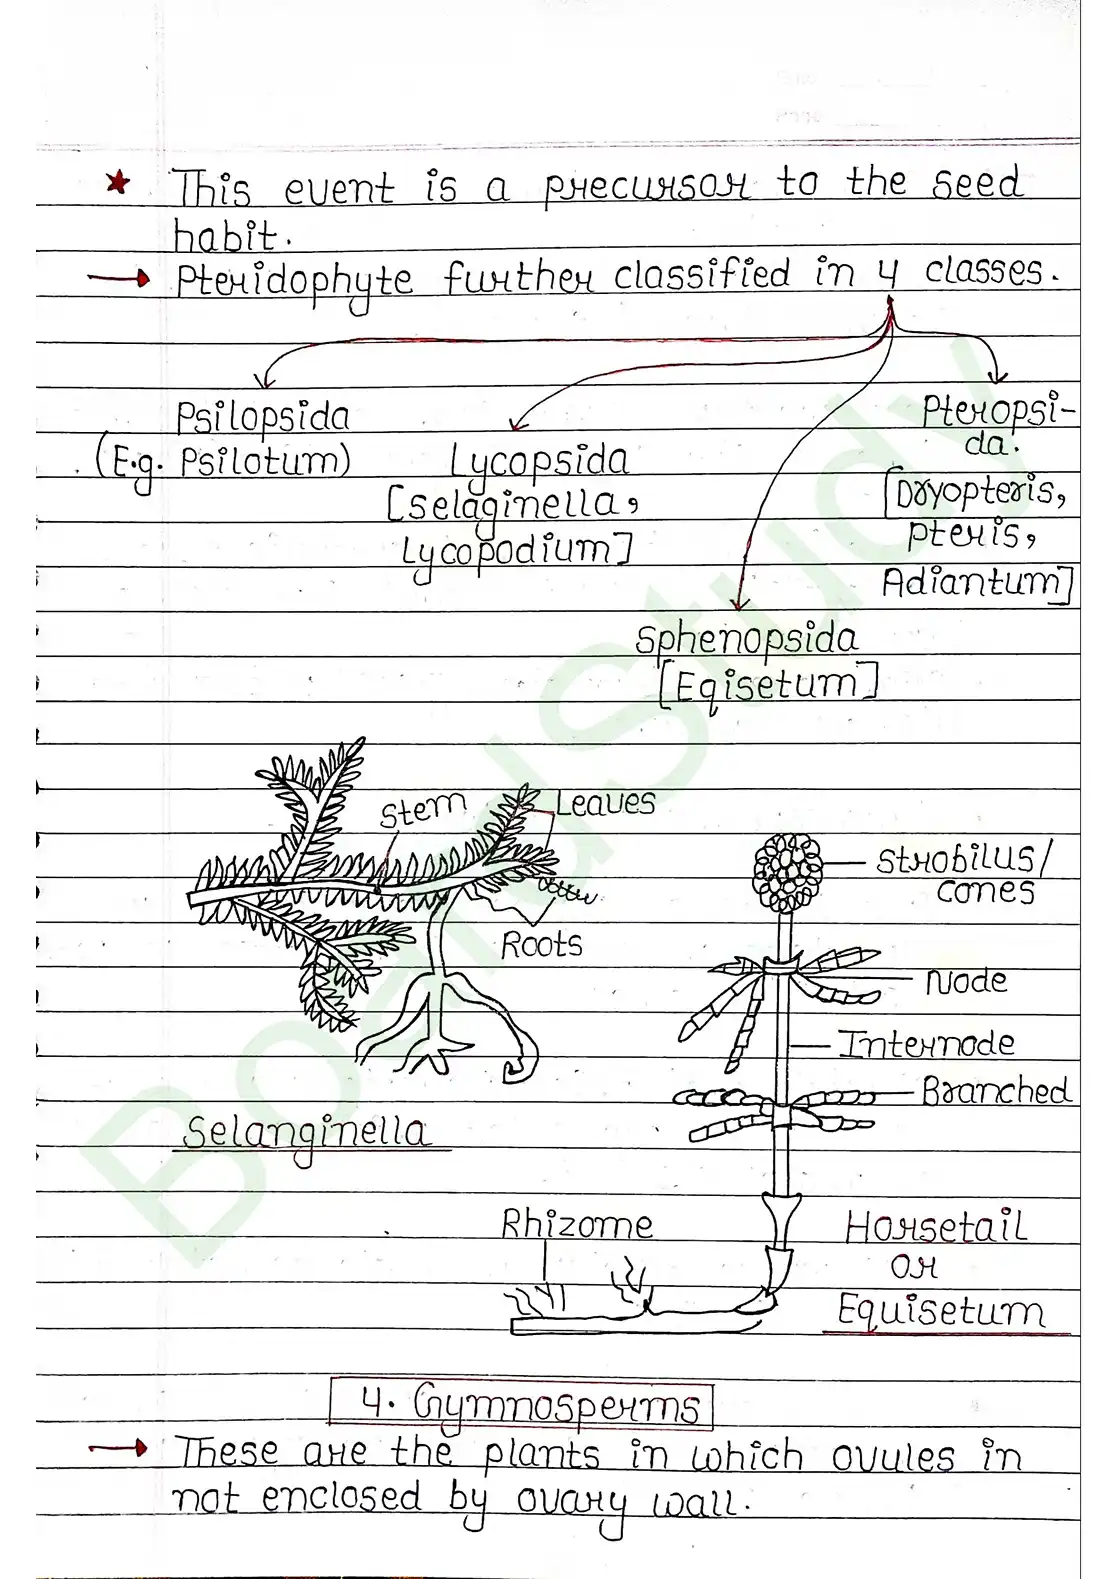 ★ This event is a precursor to the seed
habit.
→ Pteridophyte further classified in 4 classes.
Psilopsida
(E.g. Psilotum)
Lycopsida
[Selaginella,
Lycopodium]
Sphenopsida
[Eqisetum]
Pteropsi-
da.
[Dryopteris,
Pteris,
Adiantum]
Stem
Leaves
Roots
Selanginella
Strobilus/
cones
Node
Internode
Branched
Rhizome
Horsetail
or
Equisetum
4. Gymnosperms
→ These are the plants in which ovules in
not enclosed by ovary wall.
BoardStudy